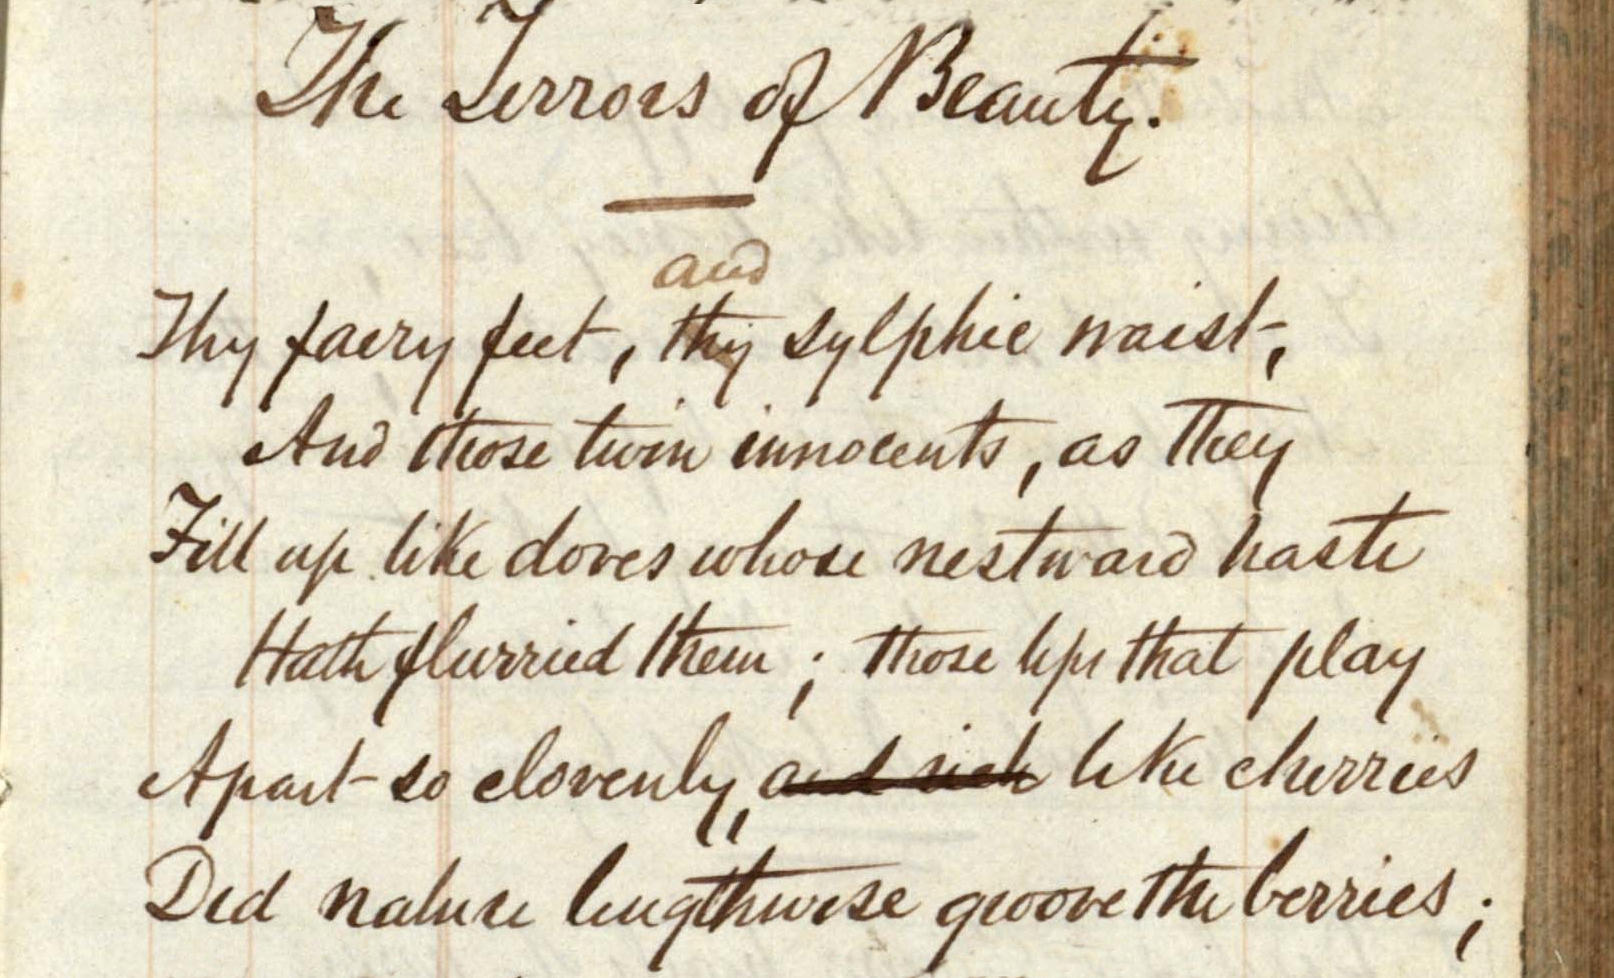 The Terrors of Beauty.
and
Thy faery feet, thy sylphic waist,
And those twin innocents, as they
Fill up like doves whose nestward haste
Hath flurried them; those lips that play
Apart so clovenly, and rich like cherries
Did nature lengthwise groove the berries;